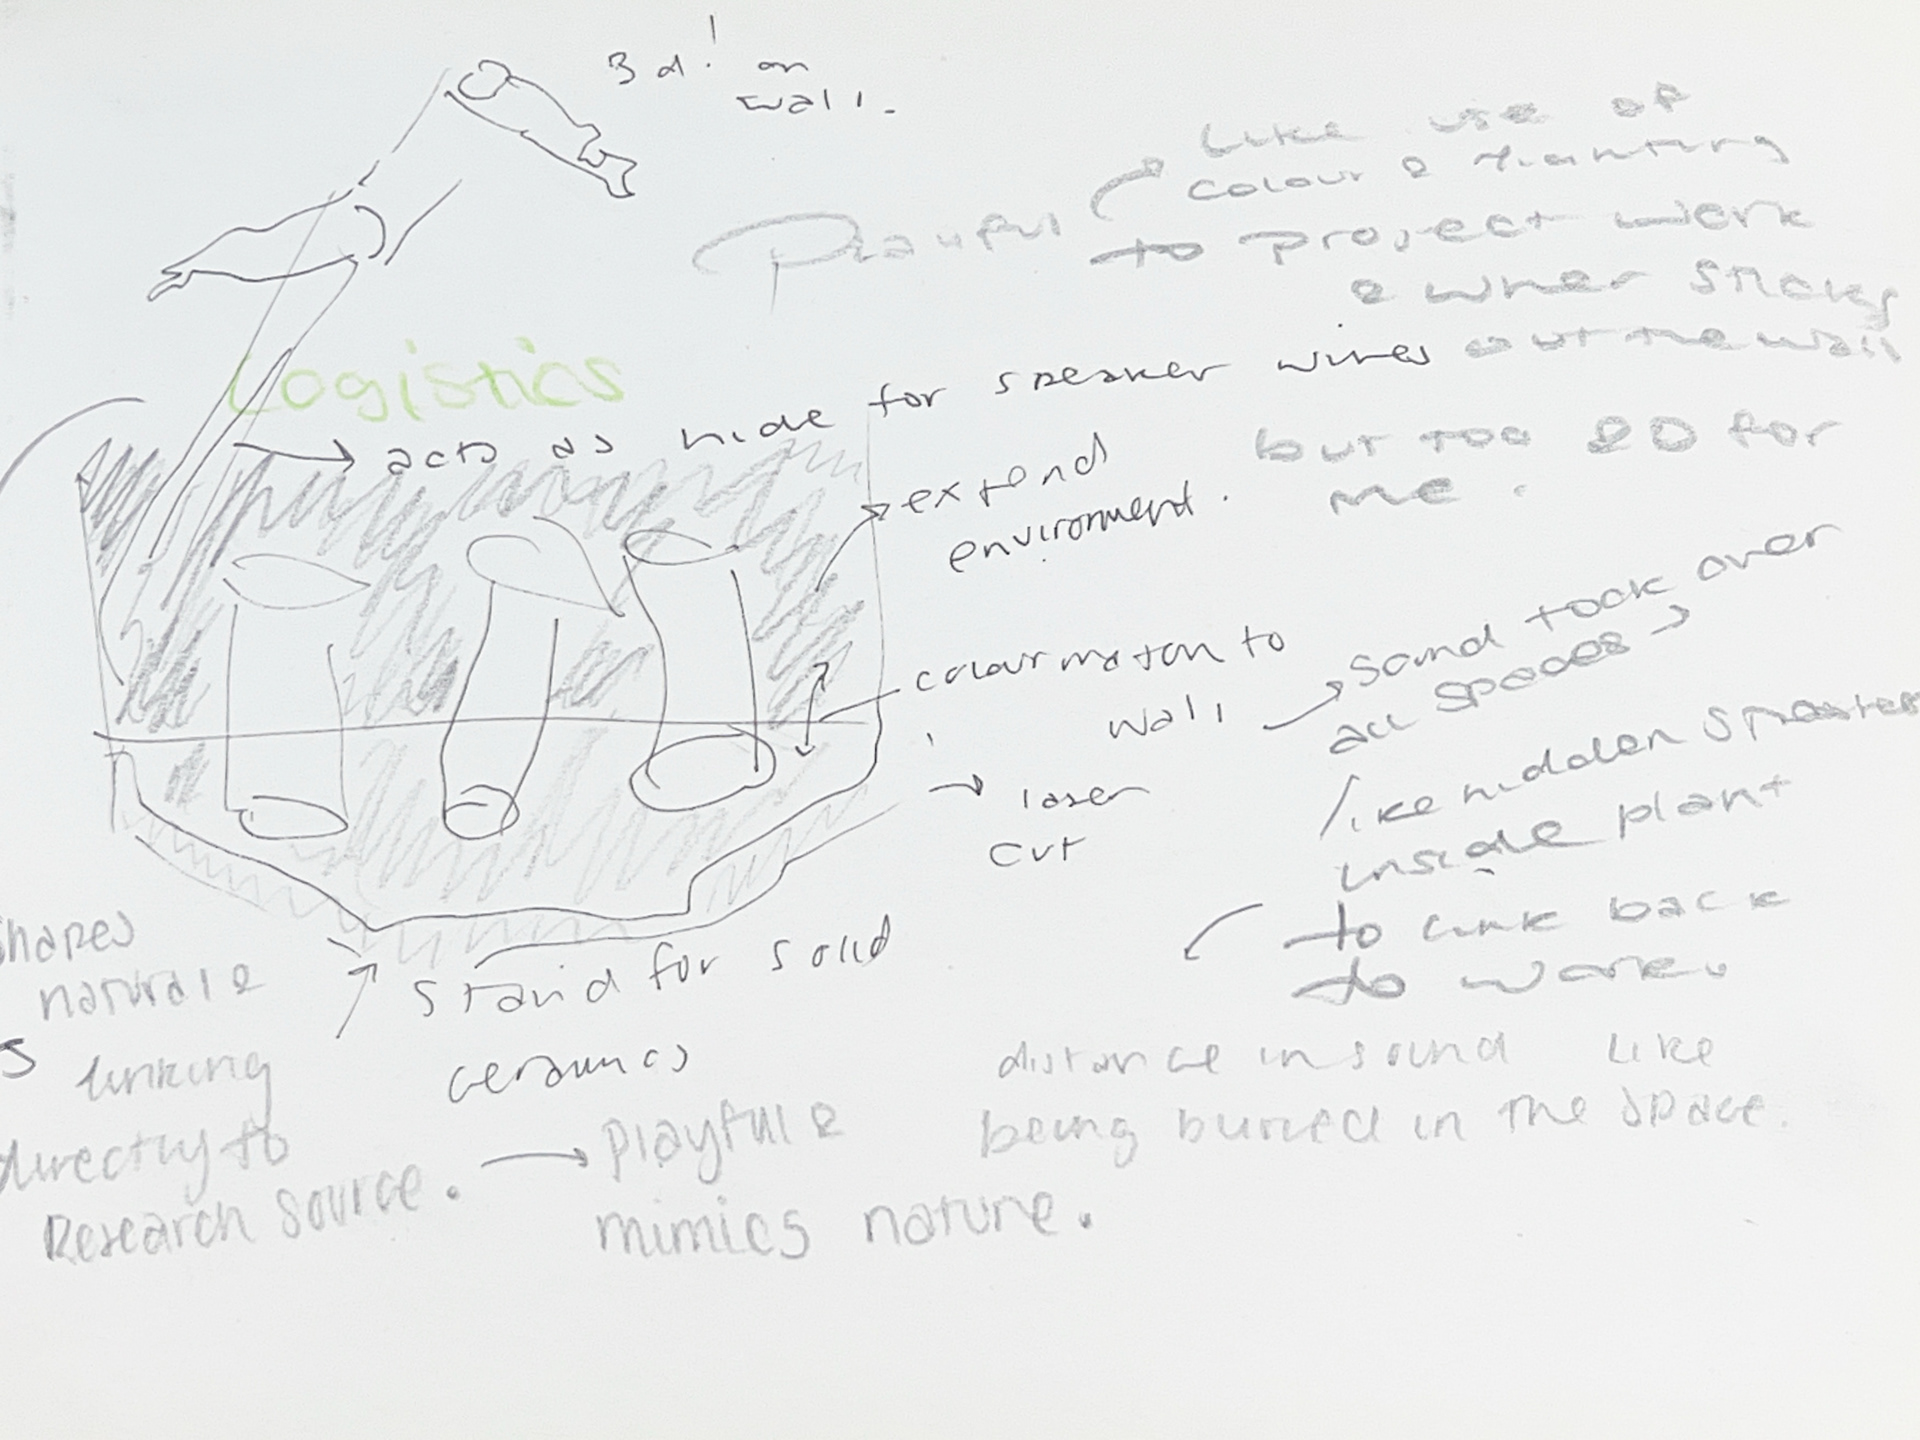 3d! on
wall.
Playful
Like use of
colour &
to project work
& when sticks
out the wall
but too 2D for
me.
Logistics
acts as hide for speaker wires
extend
environment.
colour match to
wall
laser
cut
sound took over
all spaces
like hidden speakers
inside plant
to link back
to work.
distance in sound like
being buried in the space.
stand for solid
ceramics
shapes
natural &
linking
directly to
Research source.
playful &
mimics nature.